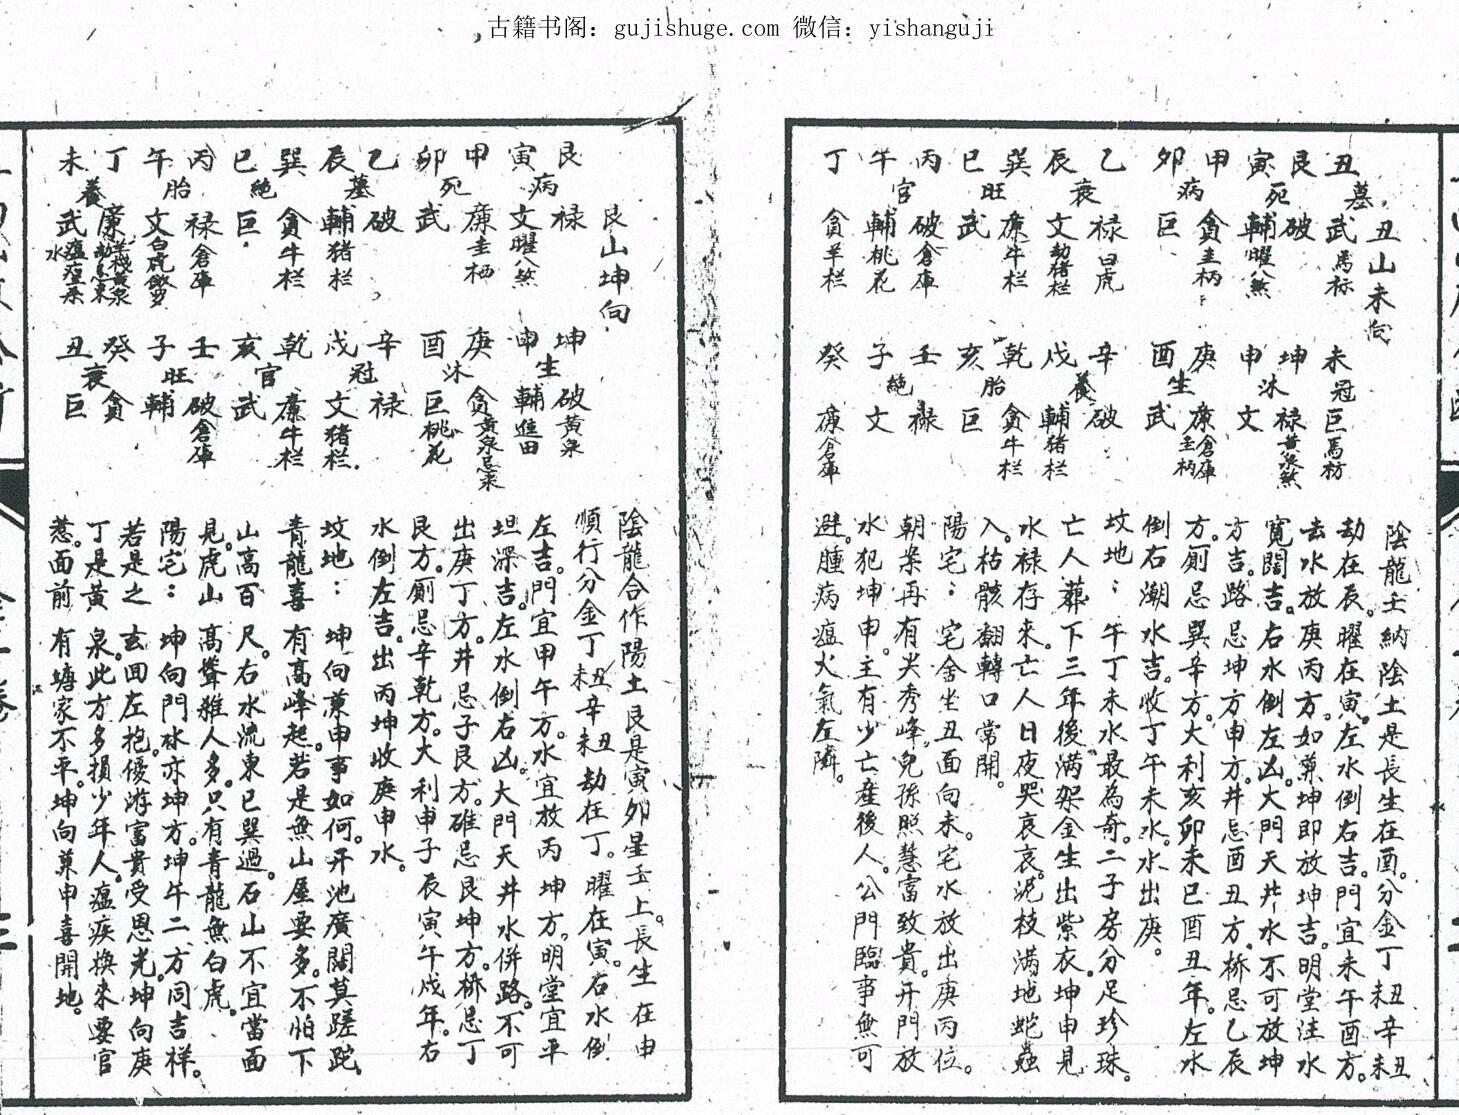 古籍书阁：gujishuge.com 微信：yishanguji
丑山未向
丑 墓 武 馬枋 未 冠 巨 馬枋
艮 破 坤 祿 黃泉煞
寅 死 輔 曜八煞 申 沐 文
甲 貪 圭柄 庚 廉 倉庫 圭柄
卯 病 巨 酉 生 武
乙 祿 白虎 辛 破
辰 衰 文 劫猪栏 戌 養 輔 猪栏
巽 廉 牛栏 乾 貪 牛栏
巳 旺 武 亥 胎 巨
丙 破 倉庫 壬 祿
午 官 輔 桃花 子 絕 文
丁 貪 羊栏 癸 廉 倉庫
陰龍壬納陰土是長生在酉。分金丁丑未辛丑未
劫在辰。曜在寅。左水倒右吉。門宜未午酉方。
去水放庚丙方。如兼坤即放坤吉。明堂注水
寬闊吉。右水倒左凶。大門天井水不可放坤
方吉。路忌坤方申方。井忌酉丑方。桥忌乙辰
方。厠忌巽辛方。大利亥卯未巳酉丑年。左水
倒右潮水吉。收丁午未水。水出庚。
坟地：午丁未水最為奇。二子房分足珍珠。
亡人葬下三年後满架金生出紫衣。坤申見
水禄存来。亡人日夜哭哀哀。泥枝满地蛇蟲
入。枯骸翻轉口常開。
陽宅：宅舍坐丑面向未。宅水放出庚丙位。
朝案再有尖秀峰。兒孫照慧富致貴。开門放
水犯坤申。主有少亡産後人。公門臨事無可
避。腫病瘟火氣左隣。
艮山坤向
艮 祿 坤 破 黃泉
寅 病 文 曜八煞 申 生 輔 進田
甲 廉 圭栖 庚 貪 黃泉忌来
卯 死 武 酉 沐 巨 桃花
乙 破 辛 祿
辰 墓 輔 猪栏 戌 冠 文 猪栏
巽 貪 牛栏 乾 廉 牛栏
巳 絕 巨 亥 官 武
丙 祿 倉庫 壬 破 倉庫
午 胎 文 白虎 子 旺 輔
丁 廉 癸 貪
未 養 武 丑 衰 巨
陰龍合作陽土艮是寅卯星壬上。長生在申
順行分金丁丑未辛丑未劫在丁。曜在寅。右水倒
左吉。門宜甲午方。水宜放丙坤方。明堂宜平
坦深吉。左水倒右凶。大門天井水併路。不可
出庚丁方。井忌子艮方。碓忌艮坤方。桥忌丁
艮方。厠忌辛乾方。大利申子辰寅午戌年。右
水倒左吉。出丙坤收庚申水。
坟地：坤向兼申事如何。开池廣闊莫蹉跎。
青龍喜有高峰起。若是無山屋要多。不怕下
山高百尺。右水流東巳巽過。石山不宜當面
見。虎山高聳雜人多。只有青龍無白虎。
陽宅：坤向門水亦坤方。坤午二方同吉祥。
若是之玄回左抱。優游富貴受恩光。坤向庚
丁是黃泉。此方多損少年人。瘟疾换來要官
惹。面前有塘家不平。坤向兼申喜開地。